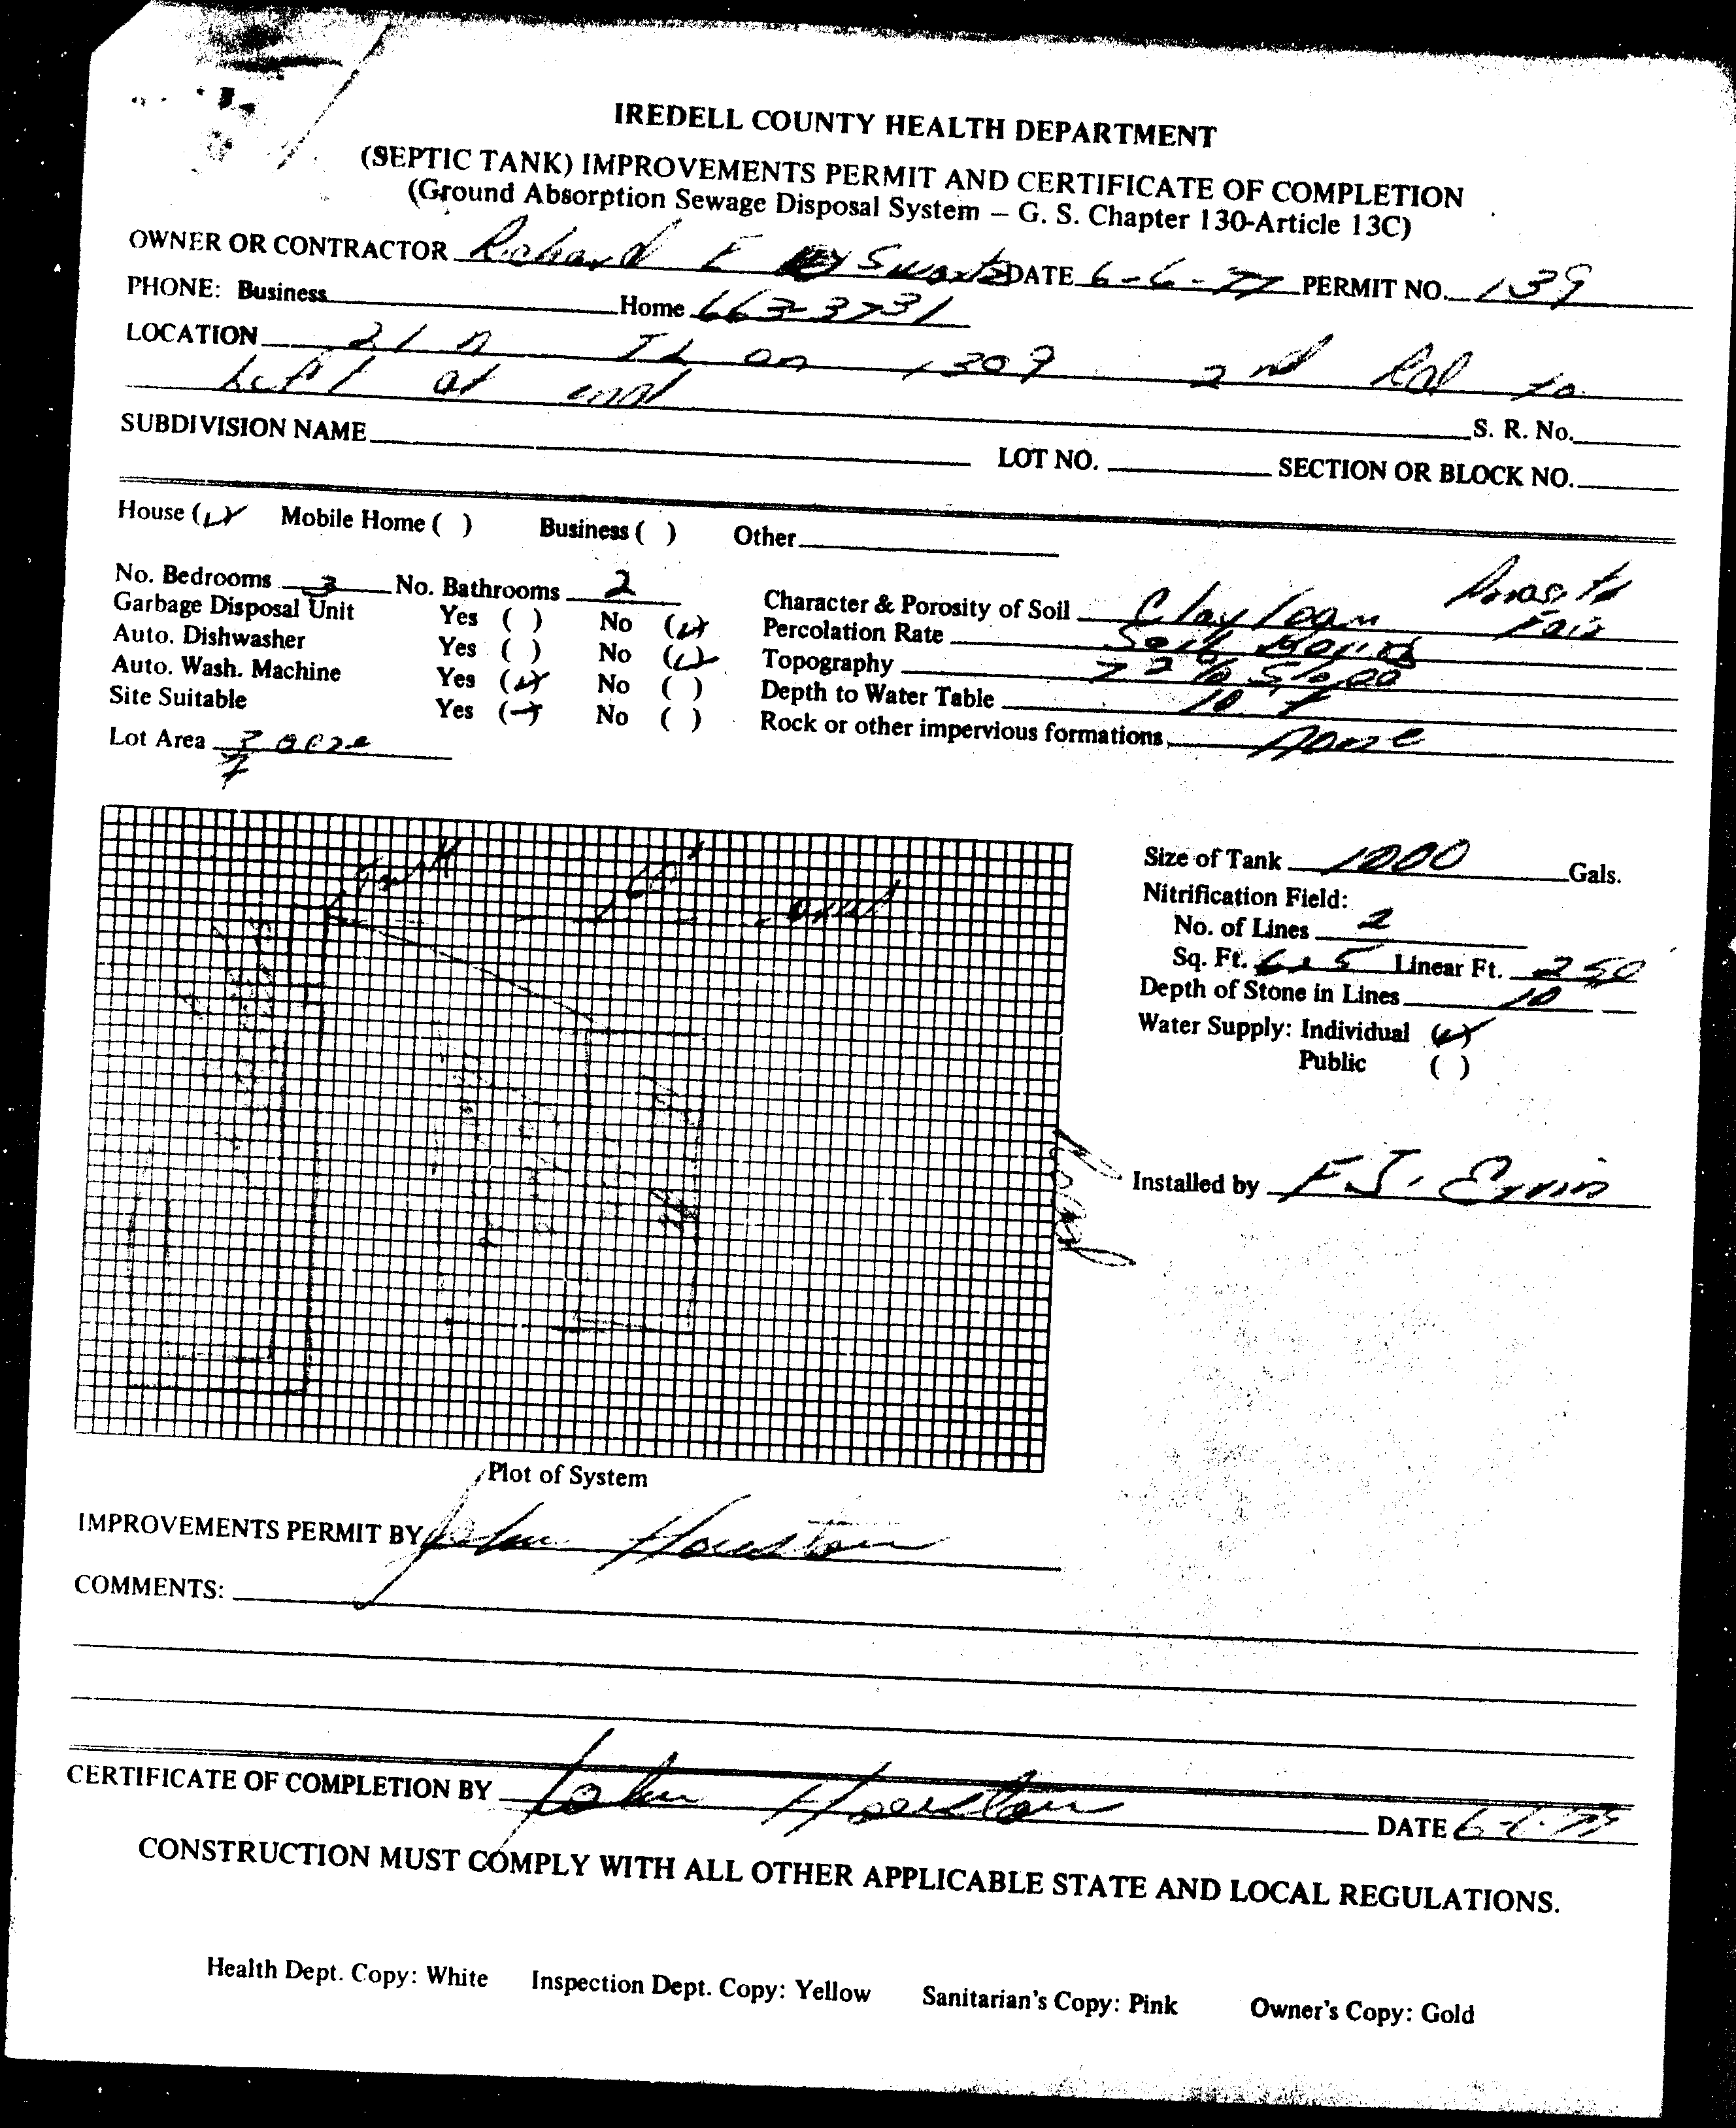 IREDELL COUNTY HEALTH DEPARTMENT
(SEPTIC TANK) IMPROVEMENTS PERMIT AND CERTIFICATE OF COMPLETION
(Ground Absorption Sewage Disposal System – G. S. Chapter 130-Article 13C)
OWNER OR CONTRACTOR Richard E Swartz DATE 6-6-77 PERMIT NO. 139
PHONE: Business Home 663-3731
LOCATION 21 N TL on 1309 2nd Rd to
Left at end S. R. No.
SUBDIVISION NAME LOT NO. SECTION OR BLOCK NO.
House (✓) Mobile Home ( ) Business ( ) Other
No. Bedrooms 3 No. Bathrooms 2
Garbage Disposal Unit Yes ( ) No (✓)
Auto. Dishwasher Yes ( ) No (✓)
Auto. Wash. Machine Yes (✓) No ( )
Site Suitable Yes (✓) No ( )
Lot Area 3/4 acre
Character & Porosity of Soil Clay loam Porosity Fair
Percolation Rate Soil
Topography 2% Slope
Depth to Water Table 10 +
Rock or other impervious formations none
Tank 60'
Size of Tank 1000 Gals.
Nitrification Field:
No. of Lines 2
Sq. Ft. 625 Linear Ft. 250
Depth of Stone in Lines 10
Water Supply: Individual (✓)
Public ( )
Installed by F.J. Ervin
Plot of System
IMPROVEMENTS PERMIT BY John Houston
COMMENTS:
CERTIFICATE OF COMPLETION BY John Houston DATE
CONSTRUCTION MUST COMPLY WITH ALL OTHER APPLICABLE STATE AND LOCAL REGULATIONS.
Health Dept. Copy: White Inspection Dept. Copy: Yellow Sanitarian's Copy: Pink Owner's Copy: Gold